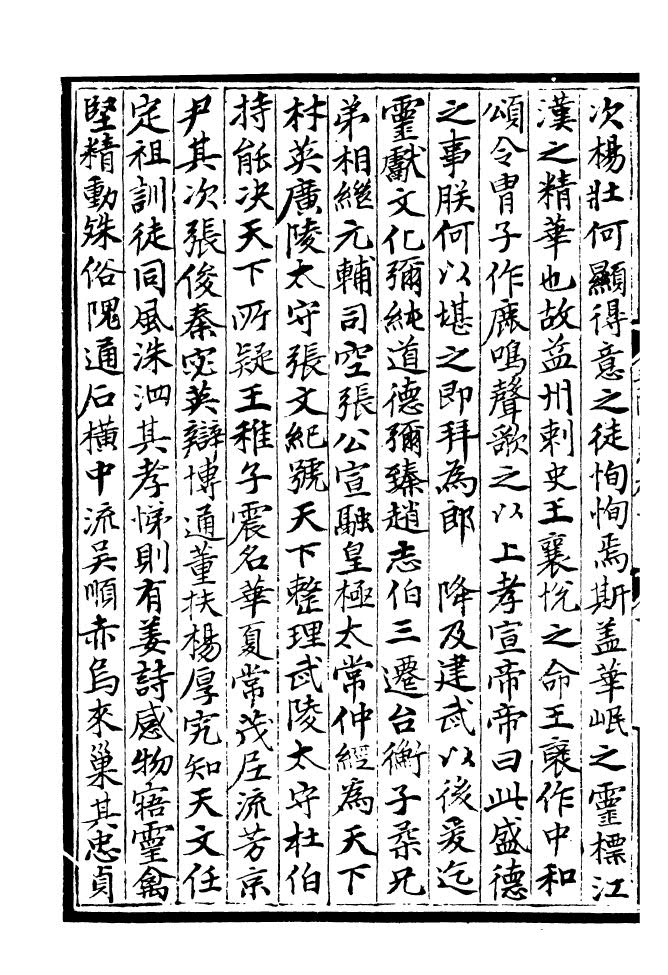 次楊壯何顯得意之徒恂恂焉斯盖華岷之靈標江
漢之精華也故益州刺史王襄悅之命王襃作中和
頌令胄子作鹿鳴聲歌之以上孝宣帝帝曰此盛德
之事朕何以堪之即拜為郎 降及建武以後爰迄
靈獻文化彌純道德彌臻趙志伯三遷台衡子柔兄
弟相繼元輔司空張公宣融皇極太常仲經為天下
材英廣陵太守張文紀號天下整理武陵太守杜伯
持能決天下所疑王稚子震名華夏常茂尼流芳京
尹其次張俊秦宓英辯博通董扶楊厚究知天文任
定祖訓徒同風洙泗其孝悌則有姜詩感物寤靈禽
堅精動殊俗隗通石橫中流吳順赤烏來巢其忠貞